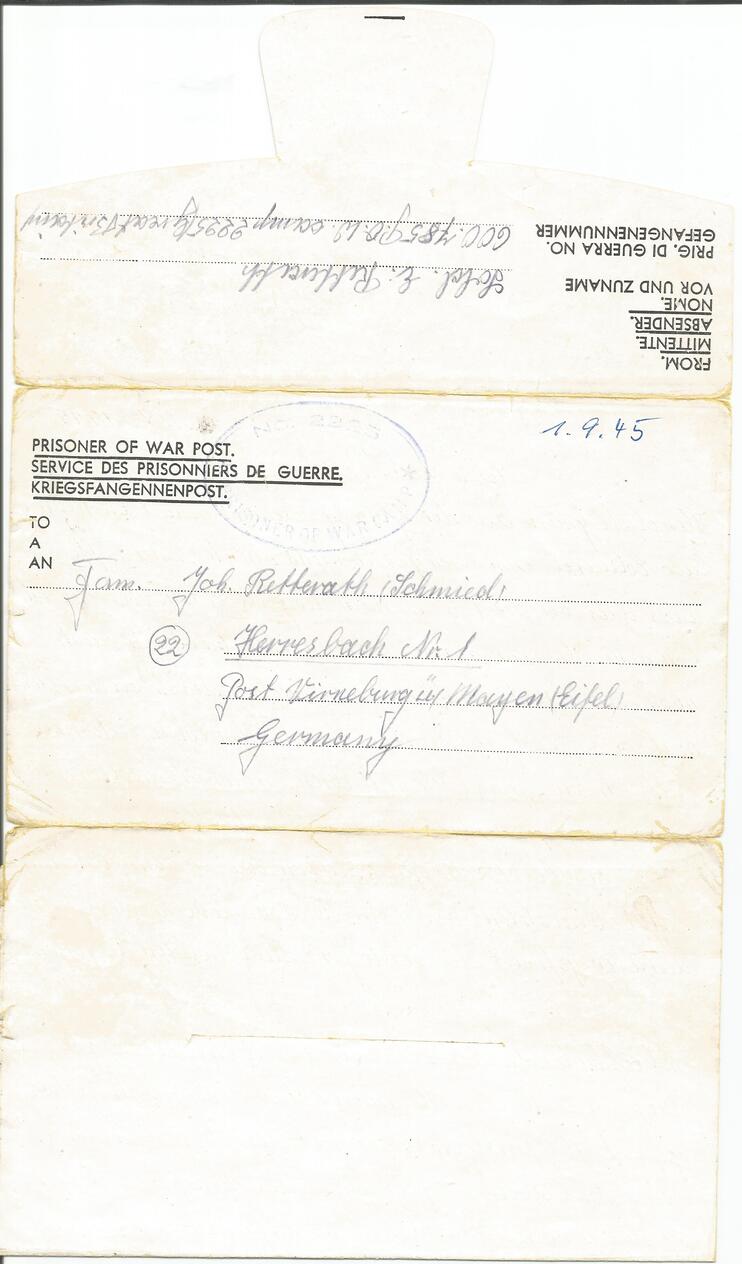 FROM.
MITTENTE.
ABSENDER.
NOME.
VOR UND ZUNAME
Retterath
PRIG. DI GUERRA NO.
GEFANGENENNUMMER
P.O.W. camp 2225 Great Britain
No. 2225
PRISONER OF WAR CAMP *
1.9.45
PRISONER OF WAR POST.
SERVICE DES PRISONNIERS DE GUERRE.
KRIEGSFANGENNENPOST.
TO
A
AN
Fam. Joh. Retterath (Schmied)
22 Herresbach Nr. 1
Post Virneburg üb Mayen (Eifel)
Germany